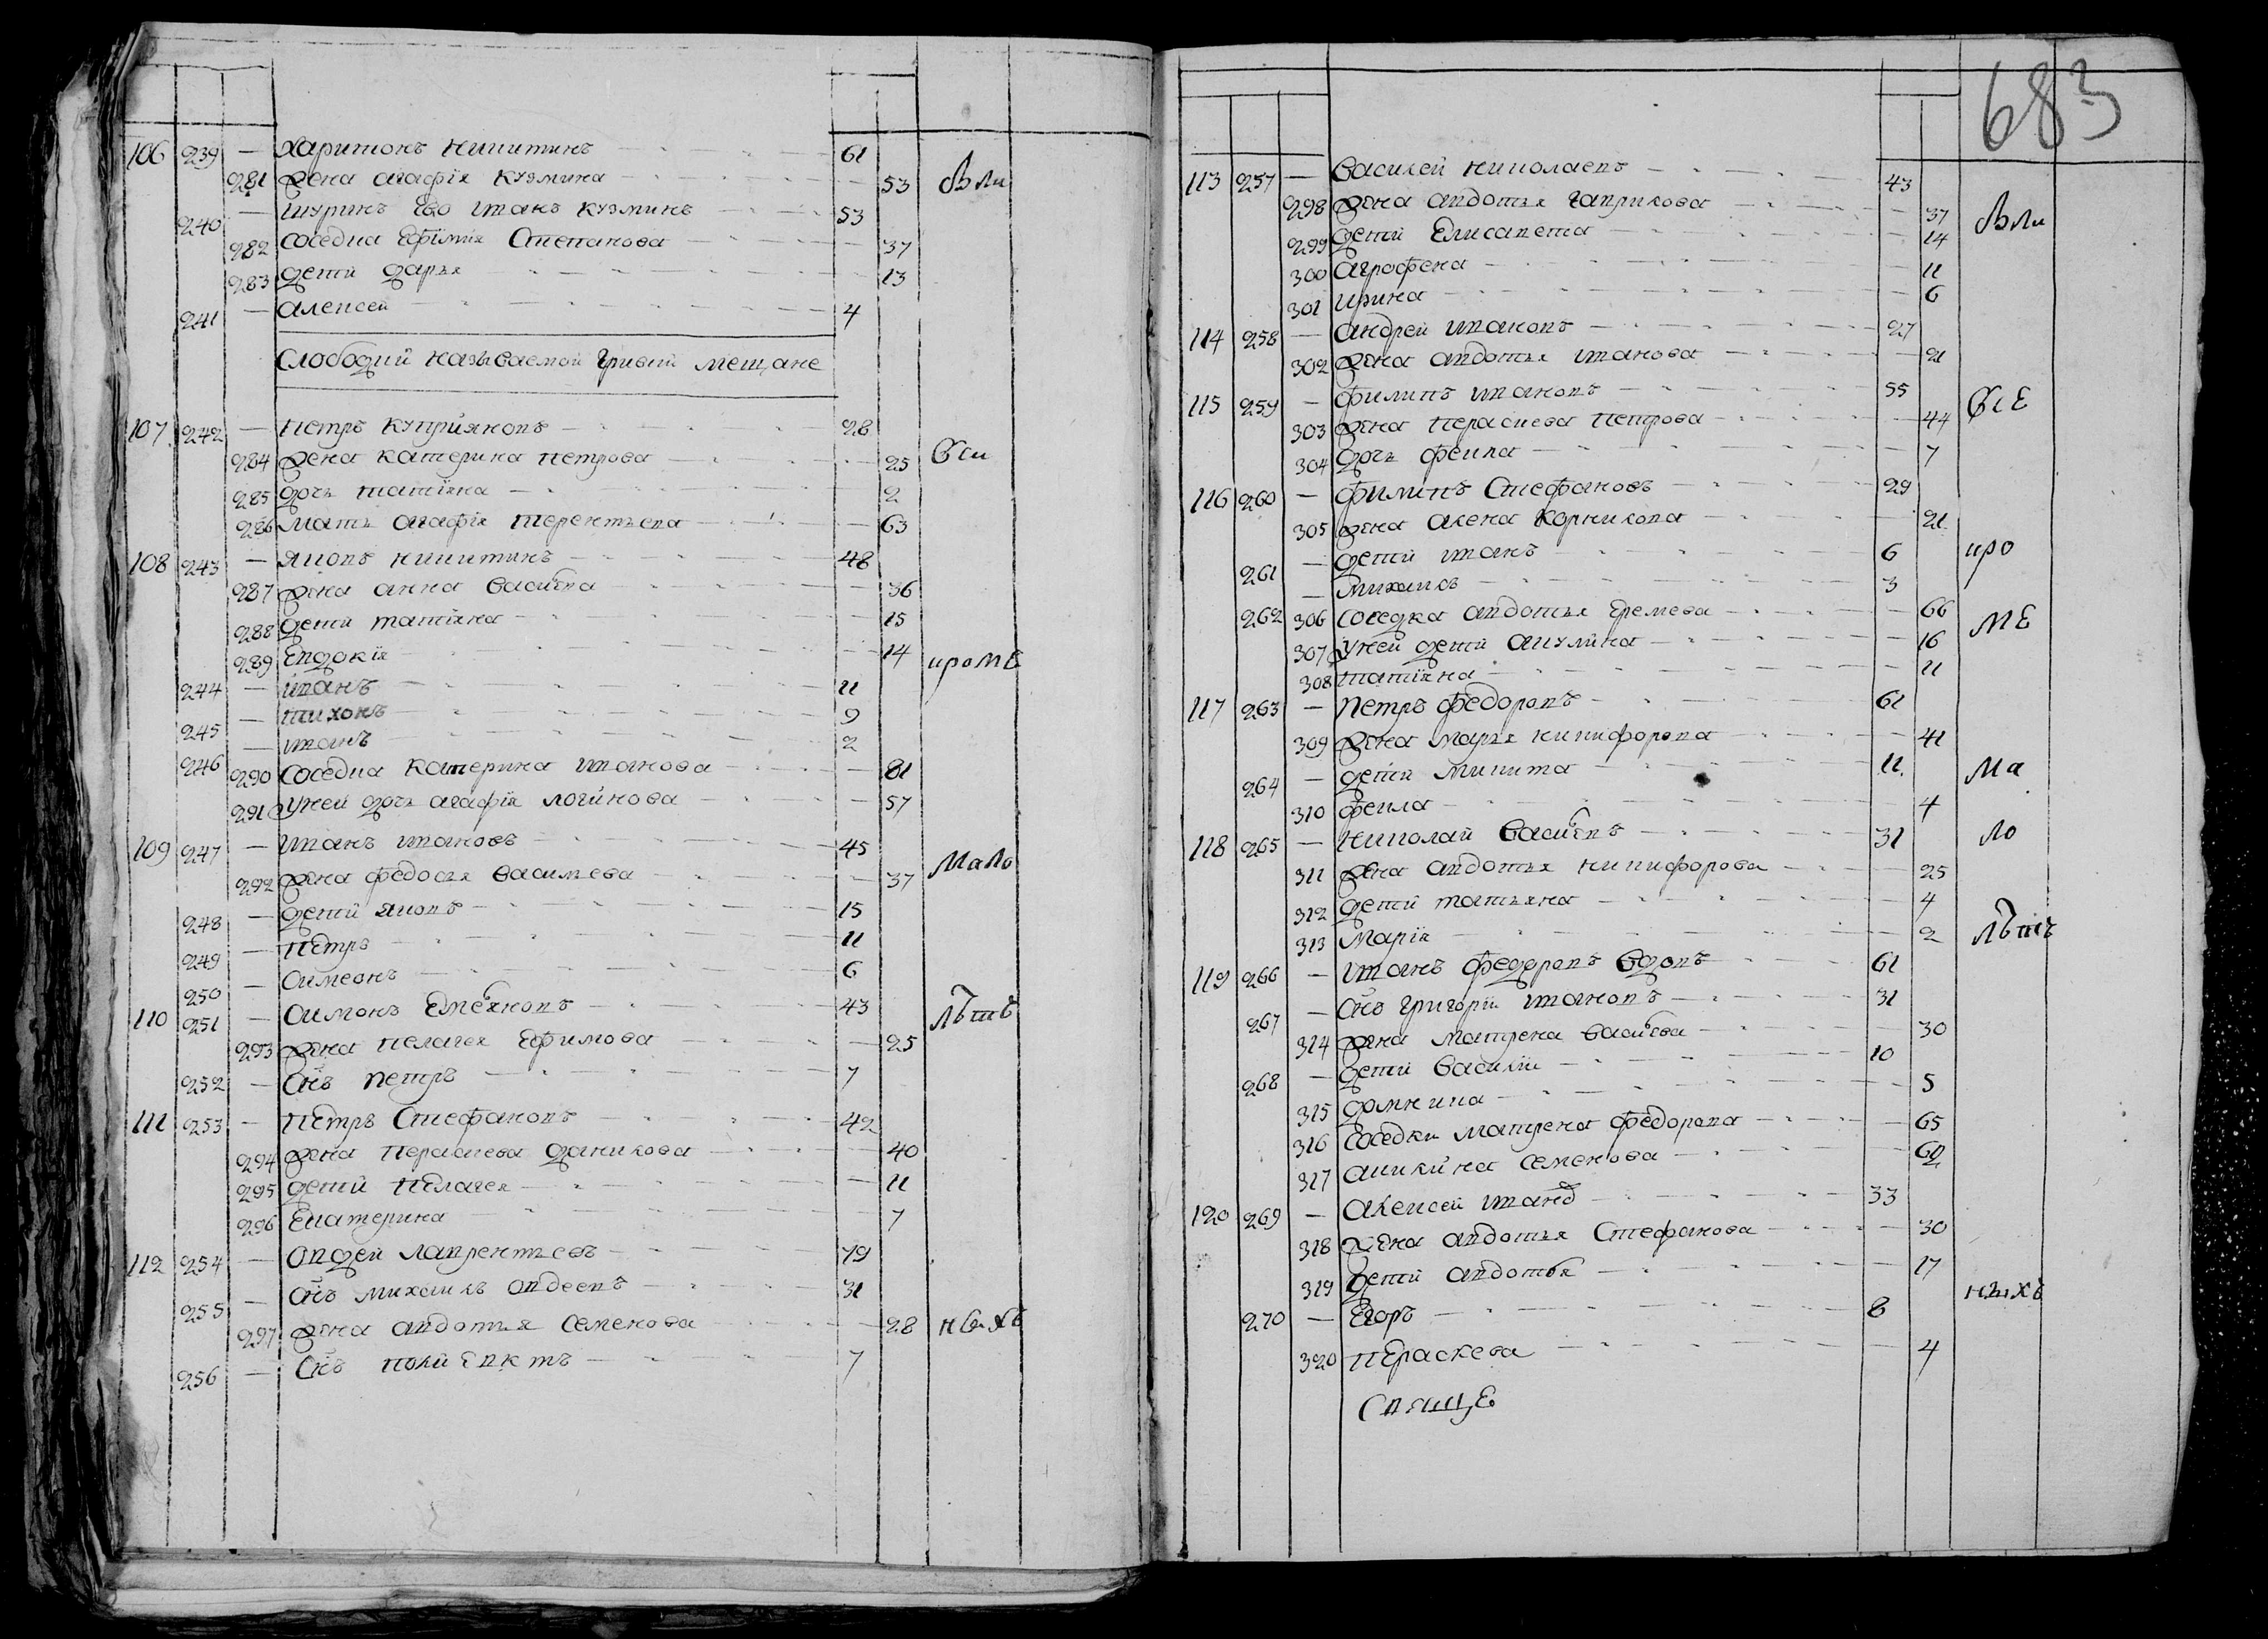 106 239 — Харитонъ Никитинъ 61
281 жена агафiя кузмина 53 были
240 — шуринъ Ево иванъ кузминъ 53
282 соседка Ефiмия Степанова 37
283 дети дарья 13
241 — алексей 4
Слободци называемой Гривки мещане
107 242 — петръ куприяновъ 28
284 жена катерина петрова 25 вси
285 дочь татiяна 2
286 мать агафiя терентьева 63
108 243 — яковъ никитинъ 48
287 жена анна васильева 36
288 дети татiяна 15
289 Евдокiя 14 кроме
244 — иванъ 11
245 — тихонъ 9
246 — иванъ 2
290 соседка катерина иванова 81
291 у ней дочь агафiя логинова 57
109 247 — иванъ ивановъ 45
292 жена федосья васильева 37 мало
248 — дети яковъ 15
249 — петръ 11
250 — симеонъ 6
110 251 — симонъ Емельяновъ 43 лѣтн
293 жена пелагея Ефимова 25
252 — снъ петръ 7
111 253 — петръ Стефановъ 42
294 жена пераскева данилова 40
295 дети пелагея 11
296 Екатерина 7
112 254 — овдей лаврентьевъ 79
255 — снъ михаилъ овдеевъ 31
297 жена авдотья семенова 28 ныхъ
256 — снъ полиевктъ 7
683
113 257 — василей николаевъ 43
298 жена авдотья гаврилова 37 были
299 дети Елисавета 14
300 аграфена 11
301 ирина 6
114 258 — андрей ивановъ 27
302 жена авдотья иванова 21
115 259 — филипъ ивановъ 55 все
303 жена пераскева петрова 44
304 дочь фекла 7
116 260 — филипъ Стефановъ 29
305 жена алена корнилова 21
261 — дети иванъ 6 кро
262 — михаилъ 3
306 соседка авдотья Еремева 66 ме
307 у ней дети акулина 16
308 татiяна 11
117 263 — петръ федоровъ 61
309 жена марья никифорова 41
264 — дети микита 11 ма
310 фекла 4
118 265 — николай васильевъ 31 ло
311 жена авдотья никифорова 25
312 дети татьяна 4
313 марiя 2 лѣтн
119 266 — иванъ федоровъ вдовъ 61
267 — снъ григорiй ивановъ 31
314 жена матрена васильева 30
268 — дети василiй 10
315 домника 5
316 соседки матрена федорова 65
317 акилина семенова 60
120 269 — алексей иванов 33
318 жена авдотья Стефанова 30
319 дети авдотья 17
270 — Егоръ 8 ныхъ
320 пераскева 4
Священ